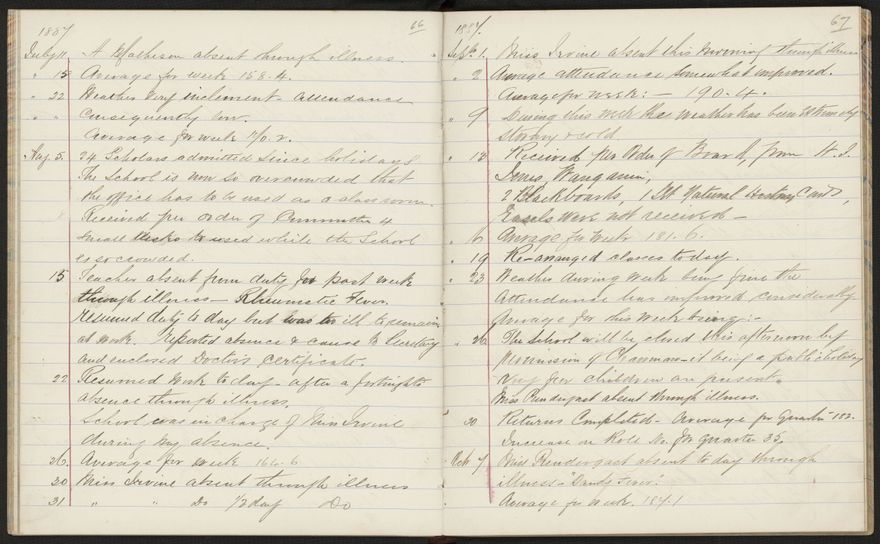 1887
66
July 11 A Mathieson absent through illness.
" 15 Average for week 158.4.
" 22 Weather very inclement. Attendance
" " Consequently low.
Average for week 170.2.
Aug 5. 24 Scholars admitted since holidays
The School is now so overcrowded that
the office has to be used as a classroom.
Received per order of Committee 4
small desks to used while the School
is so crowded.
15 Teacher absent from duty for past week
through illness - Rheumatic Fever.
Resumed duty to day but was too ill to remain
at work. Reported absence & cause to Secretary
and enclosed Doctor's certificate.
22 Resumed work to day - after a fortnight's
absence through illness.
School was in charge of Miss Irvine
during my absence.
26. Average for week 164.6
30 Miss Irvine absent through illness
31 " " Do ½ day Do
1887.
67
Sept 1. Miss Irvine absent this morning through illness
" 2 Average attendance somewhat improved.
Average for week: - 190.4.
" 9 During this week the weather has been extremely
stormy & cold.
" 12 Received per Order of Board, from H. I.
Jones, Wanganui,
2 Blackboards, 1 Set Natural History Cards,
Easels were not received -
" 16 Average for week 181.6.
" 19 Re-arranged classes to day.
" 23 Weather during week being fine the
attendance has improved considerably
Average for this week being: -
" 26 The School will be closed this afternoon by
permission of Chairman - it being a public holiday
Very few children are present.
Miss Pendergast absent through illness.
" 30 Returns Completed - Average for Quarter 182.
Increase on Role No. for quarter 35.
Oct 7 Miss Pendergast absent to day through
illness -
Average for week. 184.1